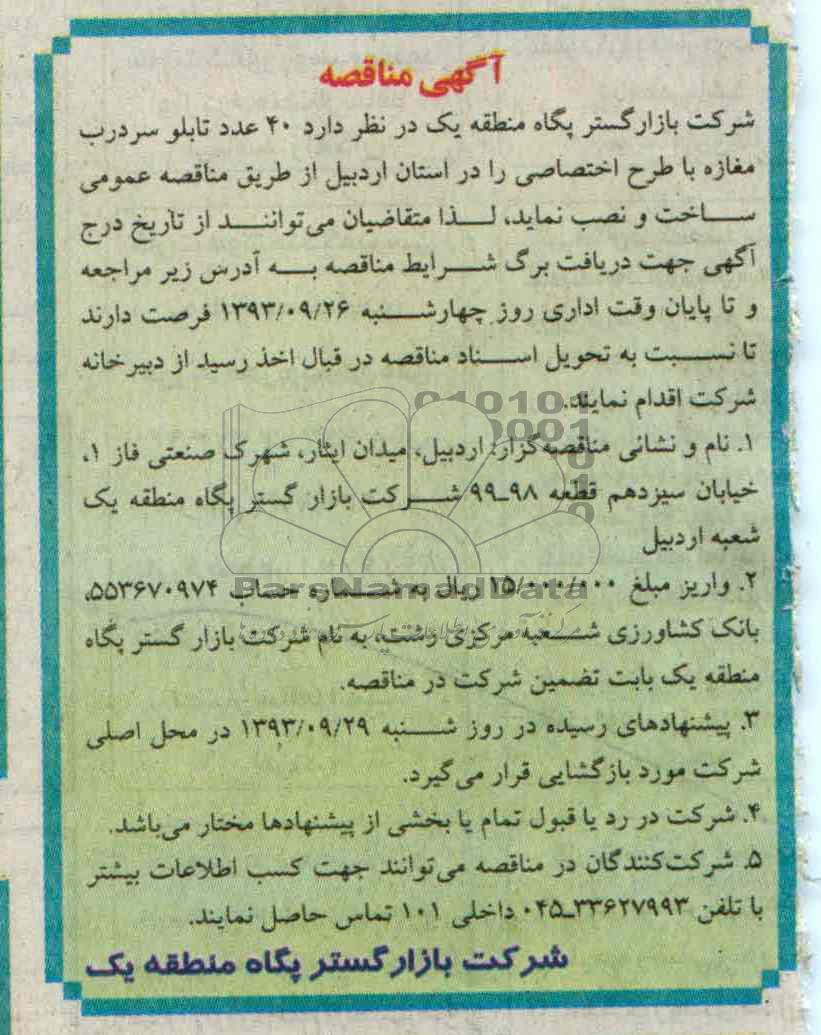 آگهی مناقصه
شرکت بازارگستر پگاه منطقه یک در نظر دارد ۴۰ عدد تابلو سردرب
مغازه با طرح اختصاصی را در استان اردبیل از طریق مناقصه عمومی
ساخت و نصب نماید، لذا متقاضیان می‌توانند از تاریخ درج
آگهی جهت دریافت برگ شرایط مناقصه به آدرس زیر مراجعه
و تا پایان وقت اداری روز چهارشنبه ۱۳۹۳/۰۹/۲۶ فرصت دارند
تا نسبت به تحویل اسناد مناقصه در قبال اخذ رسید از دبیرخانه
شرکت اقدام نمایند.
۱. نام و نشانی مناقصه‌گزار: اردبیل، میدان ایثار، شهرک صنعتی فاز ۱،
خیابان سیزدهم قطعه ۹۸ـ۹۹ شرکت بازار گستر پگاه منطقه یک
شعبه اردبیل
۲. واریز مبلغ ۱۵/۰۰۰/۰۰۰ ریال به شماره حساب ۵۵۳۶۷۰۹۷۴،
بانک کشاورزی شعبه مرکزی رشت، به نام شرکت بازار گستر پگاه
منطقه یک بابت تضمین شرکت در مناقصه.
۳. پیشنهادهای رسیده در روز شنبه ۱۳۹۳/۰۹/۲۹ در محل اصلی
شرکت مورد بازگشایی قرار می‌گیرد.
۴. شرکت در رد یا قبول تمام یا بخشی از پیشنهادها مختار می‌باشد.
۵. شرکت‌کنندگان در مناقصه می‌توانند جهت کسب اطلاعات بیشتر
با تلفن ۳۳۶۲۷۹۹۳ـ۰۴۵ داخلی ۱۰۱ تماس حاصل نمایند.
شرکت بازارگستر پگاه منطقه یک
ParsNamadData